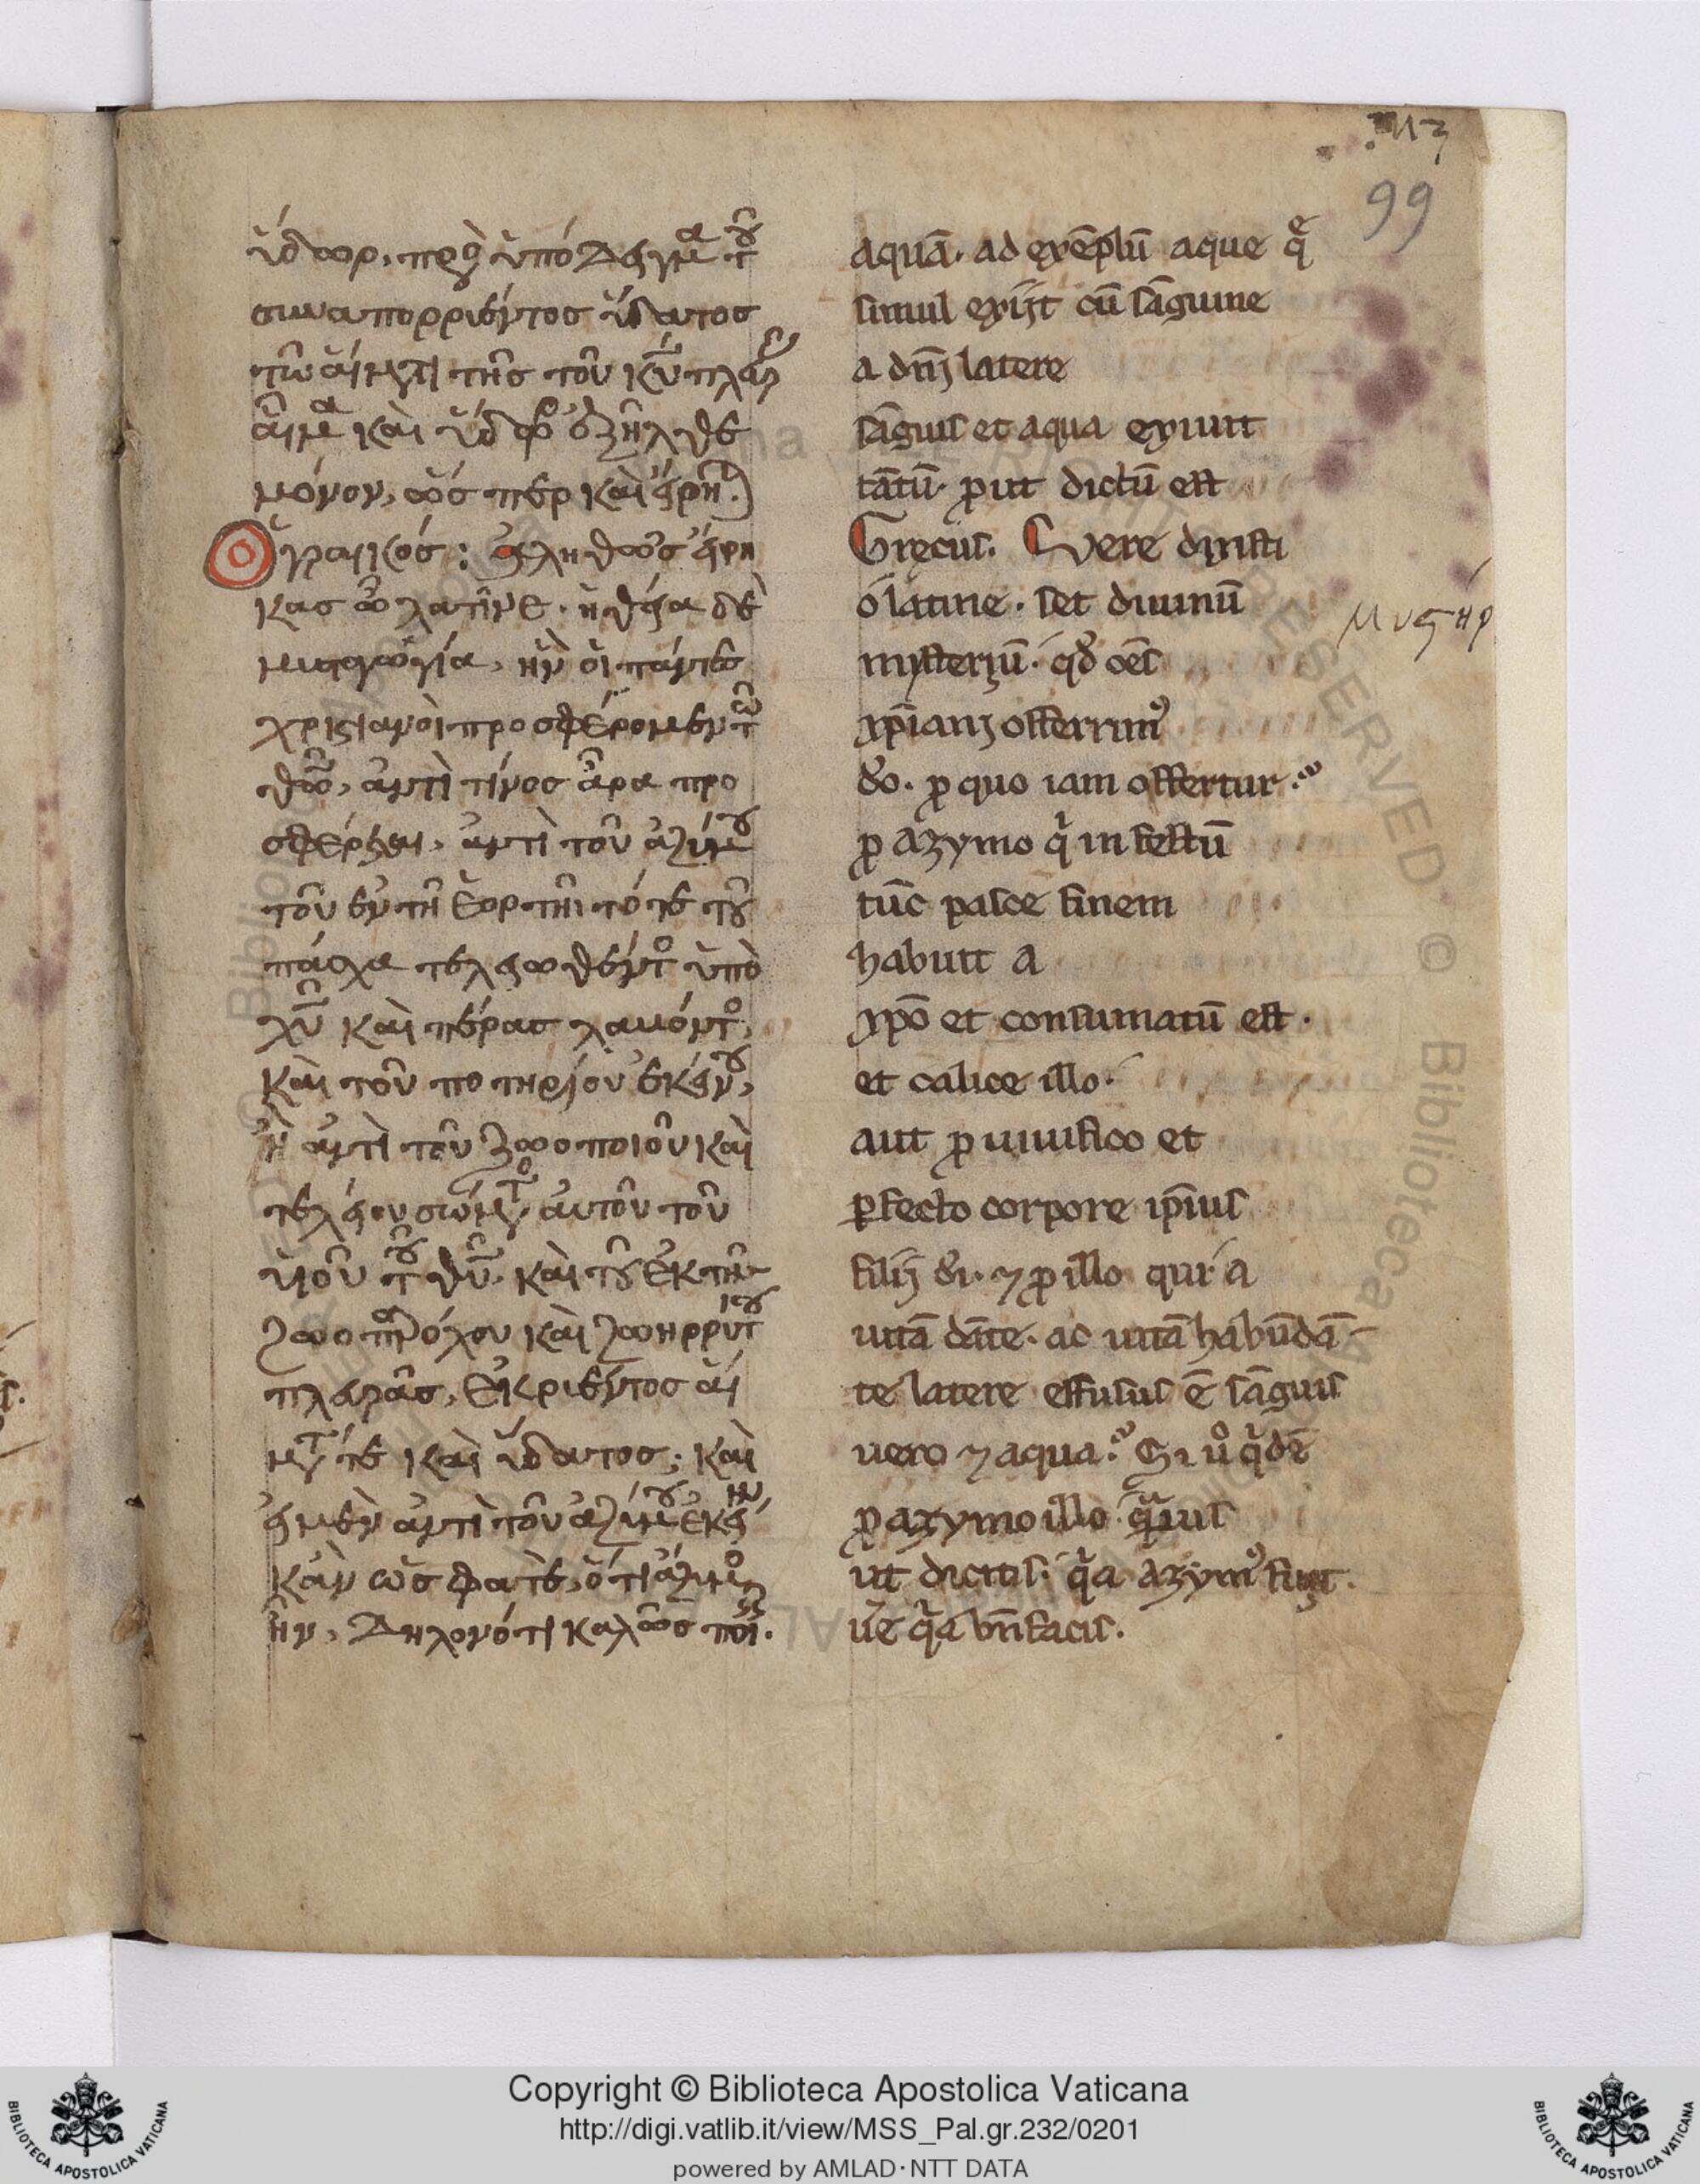 113
99
ὕδωρ, πρὸς ὑπόδειγμα τοῦ
συναπορριθέντος ὕδατος
τῶ αἵματι τῆς τοῦ κυ πλευρᾶς
αἷμα καὶ ὕδωρ ἐξῆλθε
μόνον, ὥσπερ καὶ εἴρηται.
Ὁ γραικός: ἀληθῶς εἴρη
κας ὦ λατῖνε. ἡ θεία δὲ
μυσταγωγία, ἣν οἱ πάντες
χριστιανοὶ προσφέρομεν τῶ
θῶ, ἀντὶ τίνος ἄρα προ
σφέρεται, ἀντὶ τοῦ ἀζύμου
τοῦ ἐν τῆ ἑορτῆι τότε τοῦ
πάσχα τελειωθέντος ὑπὸ
χυ καὶ πέρας λαβόντος,
καὶ τοῦ ποτηρίου ἐκείνου,
ἢ ἀντὶ τοῦ ζωοποιοῦ καὶ
τελείου σώματος αὐτοῦ τοῦ
υἱοῦ τοῦ θυ. καὶ τοῦ ἐκ τῆς
ζωοπαρόχου καὶ ζωηρρύτου
πλευρᾶς, ἐκριθέντος αἵ
ματός τε καὶ ὕδατος; καὶ
εἰ μὲν ἀντὶ τοῦ ἀζύμου ἐκείνου
κἂν ὡς φατὲ, ὅτι ἄζυμος
ἦν, δηλονότι καλῶς ποιεῖς.
aquā. ad exēplū aque q̄
simul exijt cū sāguine
a dnj latere
sāguis et aqua exiuit
tātū. ꝓut dictū est
Grecus. Vere dixisti
o latine. set diuinū
mysterjū. qđ oēs
xp̄ianj offerrimꝰ
đo. ꝓ quo iam offertur.
ꝓ azymo q̇ in festū
tūc pasce finem
habuit a
xp̄o et consumatū est.
et calice illo.
aut ꝓ uiuifico et
ꝑfecto corpore ip̄ius
filij đi. ⁊ ꝓ illo qui a
uitā dāte. ac uitā habūdā-
te latere effusus ē sāguis
uero ⁊ aqua. Si ůo q̇dē
ꝓ azymo illo
ut dicitis. q̇a azymꝰ fuit.
ůe q̇a bn̄ facis.
Copyright © Biblioteca Apostolica Vaticana
http://digi.vatlib.it/view/MSS_Pal.gr.232/0201
powered by AMLAD·NTT DATA
BIBLIOTECA APOSTOLICA VATICANA
BIBLIOTECA APOSTOLICA VATICANA